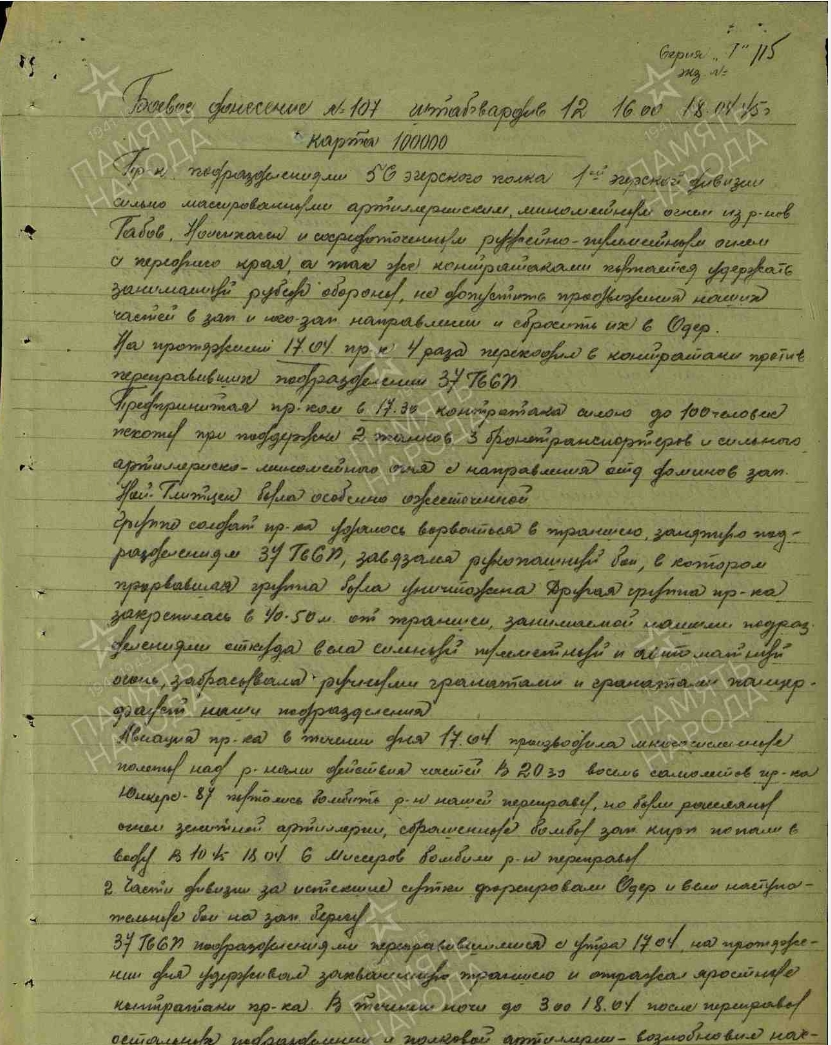 Серия "Г" 115
экз №
Боевое донесение № 107 штабгвардив 12 16.00 18.04.45г
карта 100000
Пр-к подразделениями 56 егерского полка 1ой егерской дивизии
сильно массированным артиллерийским, минометным огнем из р-нов
Габов, и сосредоточенным ружейно-пулеметным огнем
с переднего края, а так же контратаками пытается удержать
занимаемый рубеж обороны, не допустить продвижения наших
частей в зап и юго-зап. направлении и сбросить их в Одер.
На протяжении 17.04 пр-к 4 раза переходил в контратаки против
переправивших подразделений 37 ГвСП.
Предпринятая пр-ком в 17.30 контратака силою до 100 человек
пехоты при поддержке 2 танков 3 бронетранспортеров и сильного
артиллериско-минометного огня с направления отд домиков зап.
Ной-Глитцен была особенно ожесточенной
Группе солдат пр-ка удалось ворваться в траншею, занятую под-
разделениям 37 ГвСП, завязался рукопашный бой, в котором
прорвавшаяся группа была уничтожена Другая группа пр-ка
закрепилась в 40-50 м. от траншеи, занимаемой нашими подраз-
делениями откуда вела сильный пулеметный и автоматный
огонь, забрасывала ручными гранатами и гранатами панцер-
фауст наши подразделения
Авиация пр-ка в течении дня 17.04 производила многочисленные
полеты над р-нами действия частей В 20 30 восемь самолетов пр-ка
Юнкерс-87 пытались бомбить р-н нашей переправы, но были рассеяны
огнем зенитной артиллерии, сброшенные бомбы зап. кирп попали в
воду В 10 45 18 04 6 Мессеров бомбили р-н переправы
2 Части дивизии за истекшие сутки форсировали Одер и вели наступа-
тельные бои на зап. берегу
37 ГвСП подразделениями переправившимися с утра 17 04, на протяже-
нии дня удерживал захваченную траншею и отражал яростные
контратаки пр-ка. В течении ночи до 3.00 18.04 после переправы
остальных подразделений и полковой артиллерии - возобновил нас-
ПАМЯТЬ
НАРОДА
1941-1945